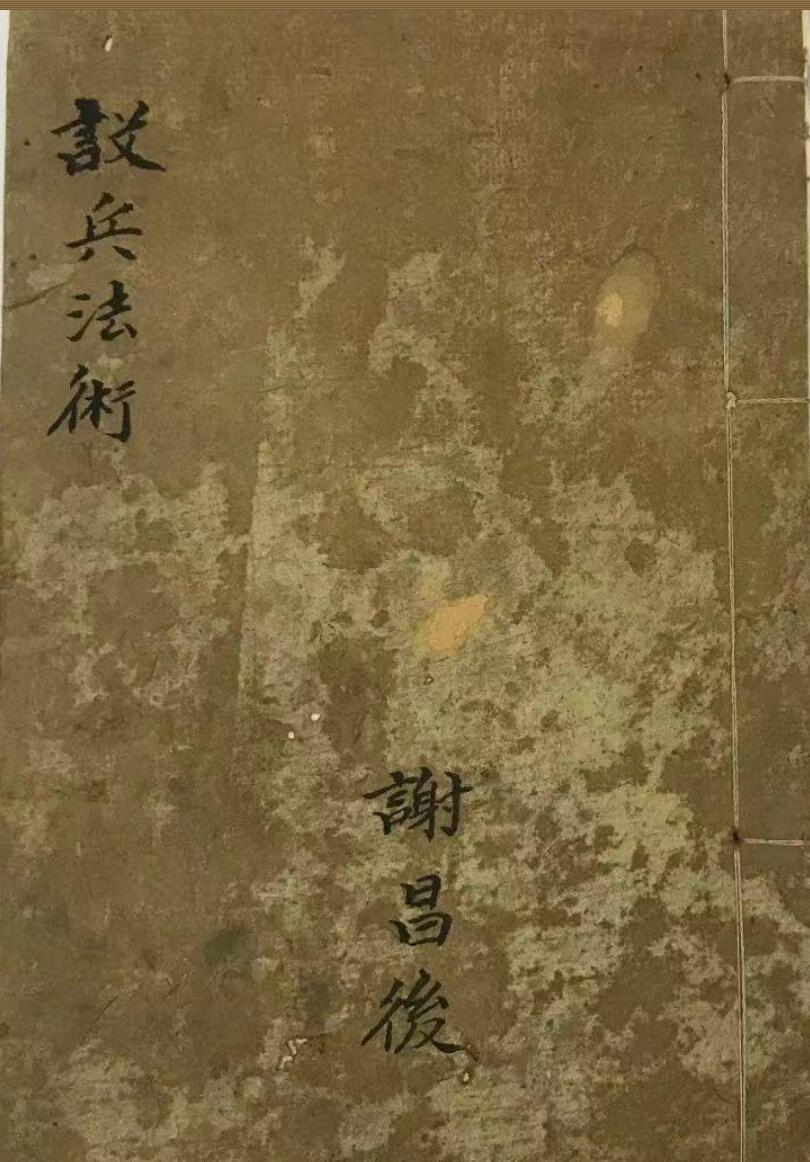 設兵法術
謝昌後